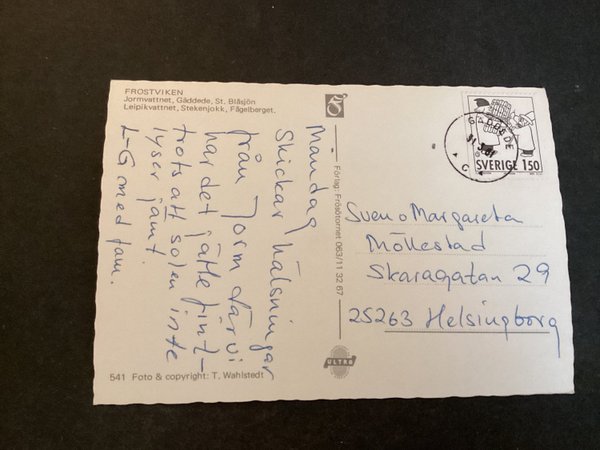 FROSTVIKEN
Jormvattnet, Gäddede, St. Blåsjön
Leipikvattnet, Stekenjokk, Fågelberget.
Måndag
Skickar hälsningar
från Jorm där vi
har det jättefint-
trots att solen inte
lyser jämt.
L-G med fam.
541 Foto & copyright: T. Wahlstedt
Förlag: Frösötornet 063/11 32 67
ULTRA
GÄDDEDE
SVERIGE 150
Sven o Margareta
Möllestad
Skaragatan 29
25263 Helsingborg